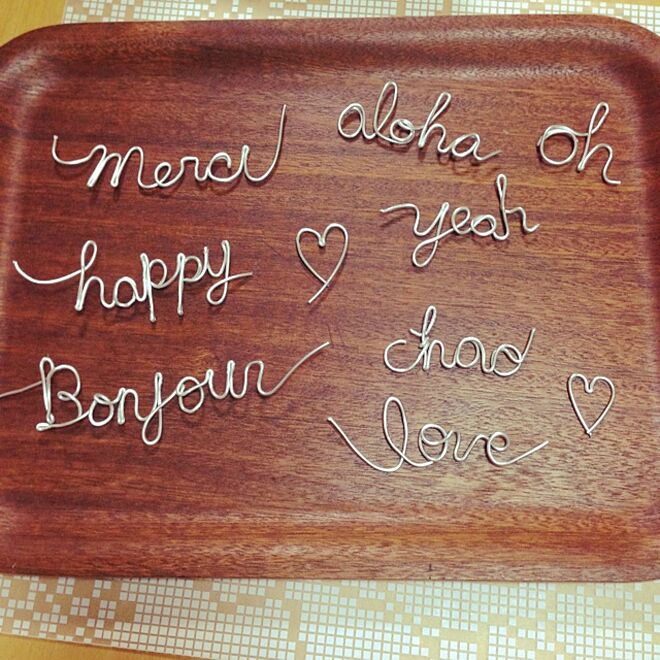 merci
aloha
oh
yeah
happy
chao
Bonjour
love